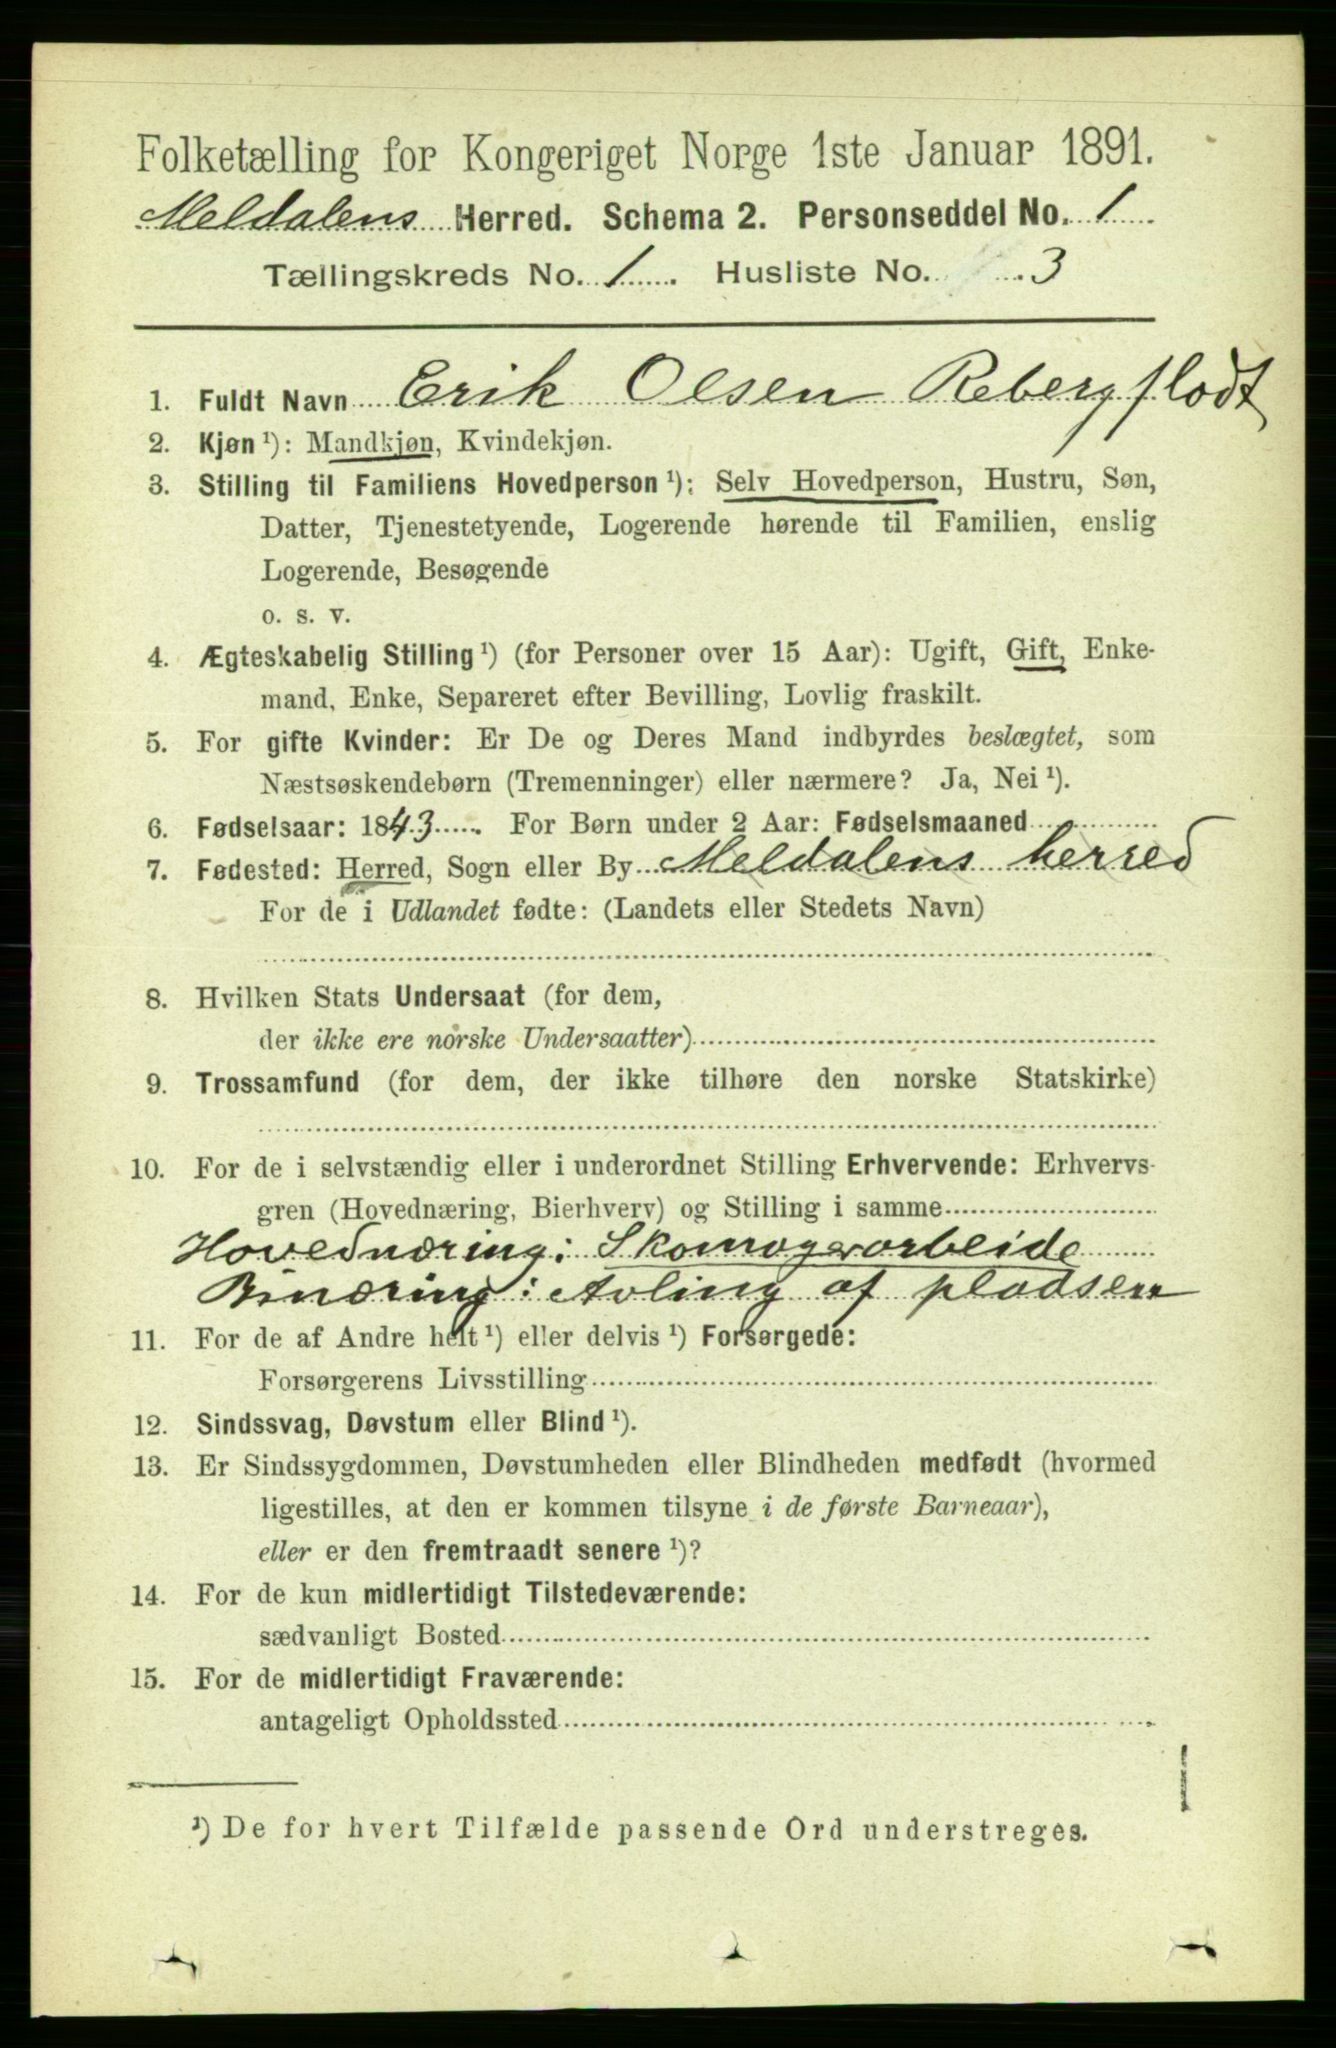 Folketælling for Kongeriget Norge 1ste Januar 1891.
Meldalens Herred. Schema 2. Personseddel No. 1
Tællingskreds No. 1. Husliste No. 3
1. Fuldt Navn Erik Olsen Rebergflødt
2. Kjøn ¹): Mandkjøn, Kvindekjøn.
3. Stilling til Familiens Hovedperson ¹): Selv Hovedperson, Hustru, Søn,
Datter, Tjenestetyende, Logerende hørende til Familien, enslig
Logerende, Besøgende
o. s. v.
4. Ægteskabelig Stilling ¹) (for Personer over 15 Aar): Ugift, Gift, Enke-
mand, Enke, Separeret efter Bevilling, Lovlig fraskilt.
5. For gifte Kvinder: Er De og Deres Mand indbyrdes beslægtet, som
Næstsøskendebørn (Tremenninger) eller nærmere? Ja, Nei ¹).
6. Fødselsaar: 1843. For Børn under 2 Aar: Fødselsmaaned
7. Fødested: Herred, Sogn eller By Meldalens herred
For de i Udlandet fødte: (Landets eller Stedets Navn)
8. Hvilken Stats Undersaat (for dem,
der ikke ere norske Undersaatter)
9. Trossamfund (for dem, der ikke tilhøre den norske Statskirke)
10. For de i selvstændig eller i underordnet Stilling Erhvervende: Erhvervs-
gren (Hovednæring, Bierhverv) og Stilling i samme
Hovednæring: Skomagerarbeide
Binæring: Avling af pladsen
11. For de af Andre helt ¹) eller delvis ¹) Forsørgede:
Forsørgerens Livsstilling
12. Sindssvag, Døvstum eller Blind ¹).
13. Er Sindssygdommen, Døvstumheden eller Blindheden medfødt (hvormed
ligestilles, at den er kommen tilsyne i de første Barneaar),
eller er den fremtraadt senere ¹)?
14. For de kun midlertidigt Tilstedeværende:
sædvanligt Bosted
15. For de midlertidigt Fraværende:
antageligt Opholdssted
¹) De for hvert Tilfælde passende Ord understreges.